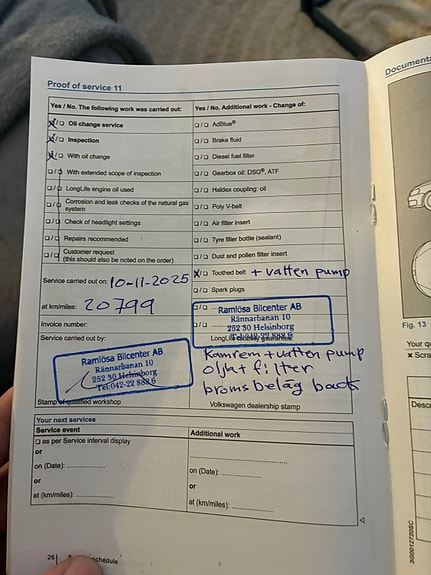 Proof of service 11
Documenta
Yes / No. The following work was carried out:
Yes / No. Additional work - Change of:
Oil change service
AdBlue®
Inspection
Brake fluid
With oil change
Diesel fuel filter
With extended scope of inspection
Gearbox oil: DSG®, ATF
LongLife engine oil used
Haldex coupling: oil
Corrosion and leak checks of the natural gas
system
Poly V-belt
Check of headlight settings
Air filter insert
Repairs recommended
Tyre filler bottle (sealant)
Customer request
(this should also be noted on the order)
Dust and pollen filter insert
Service carried out on: 10-11-2025
Toothed belt + vatten pump
Spark plugs
at km/miles: 20799
Ramlösa Bilcenter AB
Rännarbanan 10
252 30 Helsinborg
Tel:042-22
Invoice number:
LongLife guarantee
Service carried out by:
Ramlösa Bilcenter AB
Rännarbanan 10
252 30 Helsinborg
Tel:042-22 888 6
Kamrem + vatten pump
olja + filter
bromsbelåg back
Stamp of qualified workshop
Volkswagen dealership stamp
Your next services
Service event
Additional work
as per Service interval display
or
on (Date):
on (Date):
or
or
at (km/miles):
at (km/miles):
26
schedule
Fig. 13
Your qu
× Scra
Descri
3G0012720SC